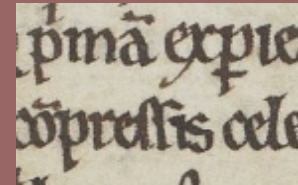 pmā exꝑie
cōpreſſis cele